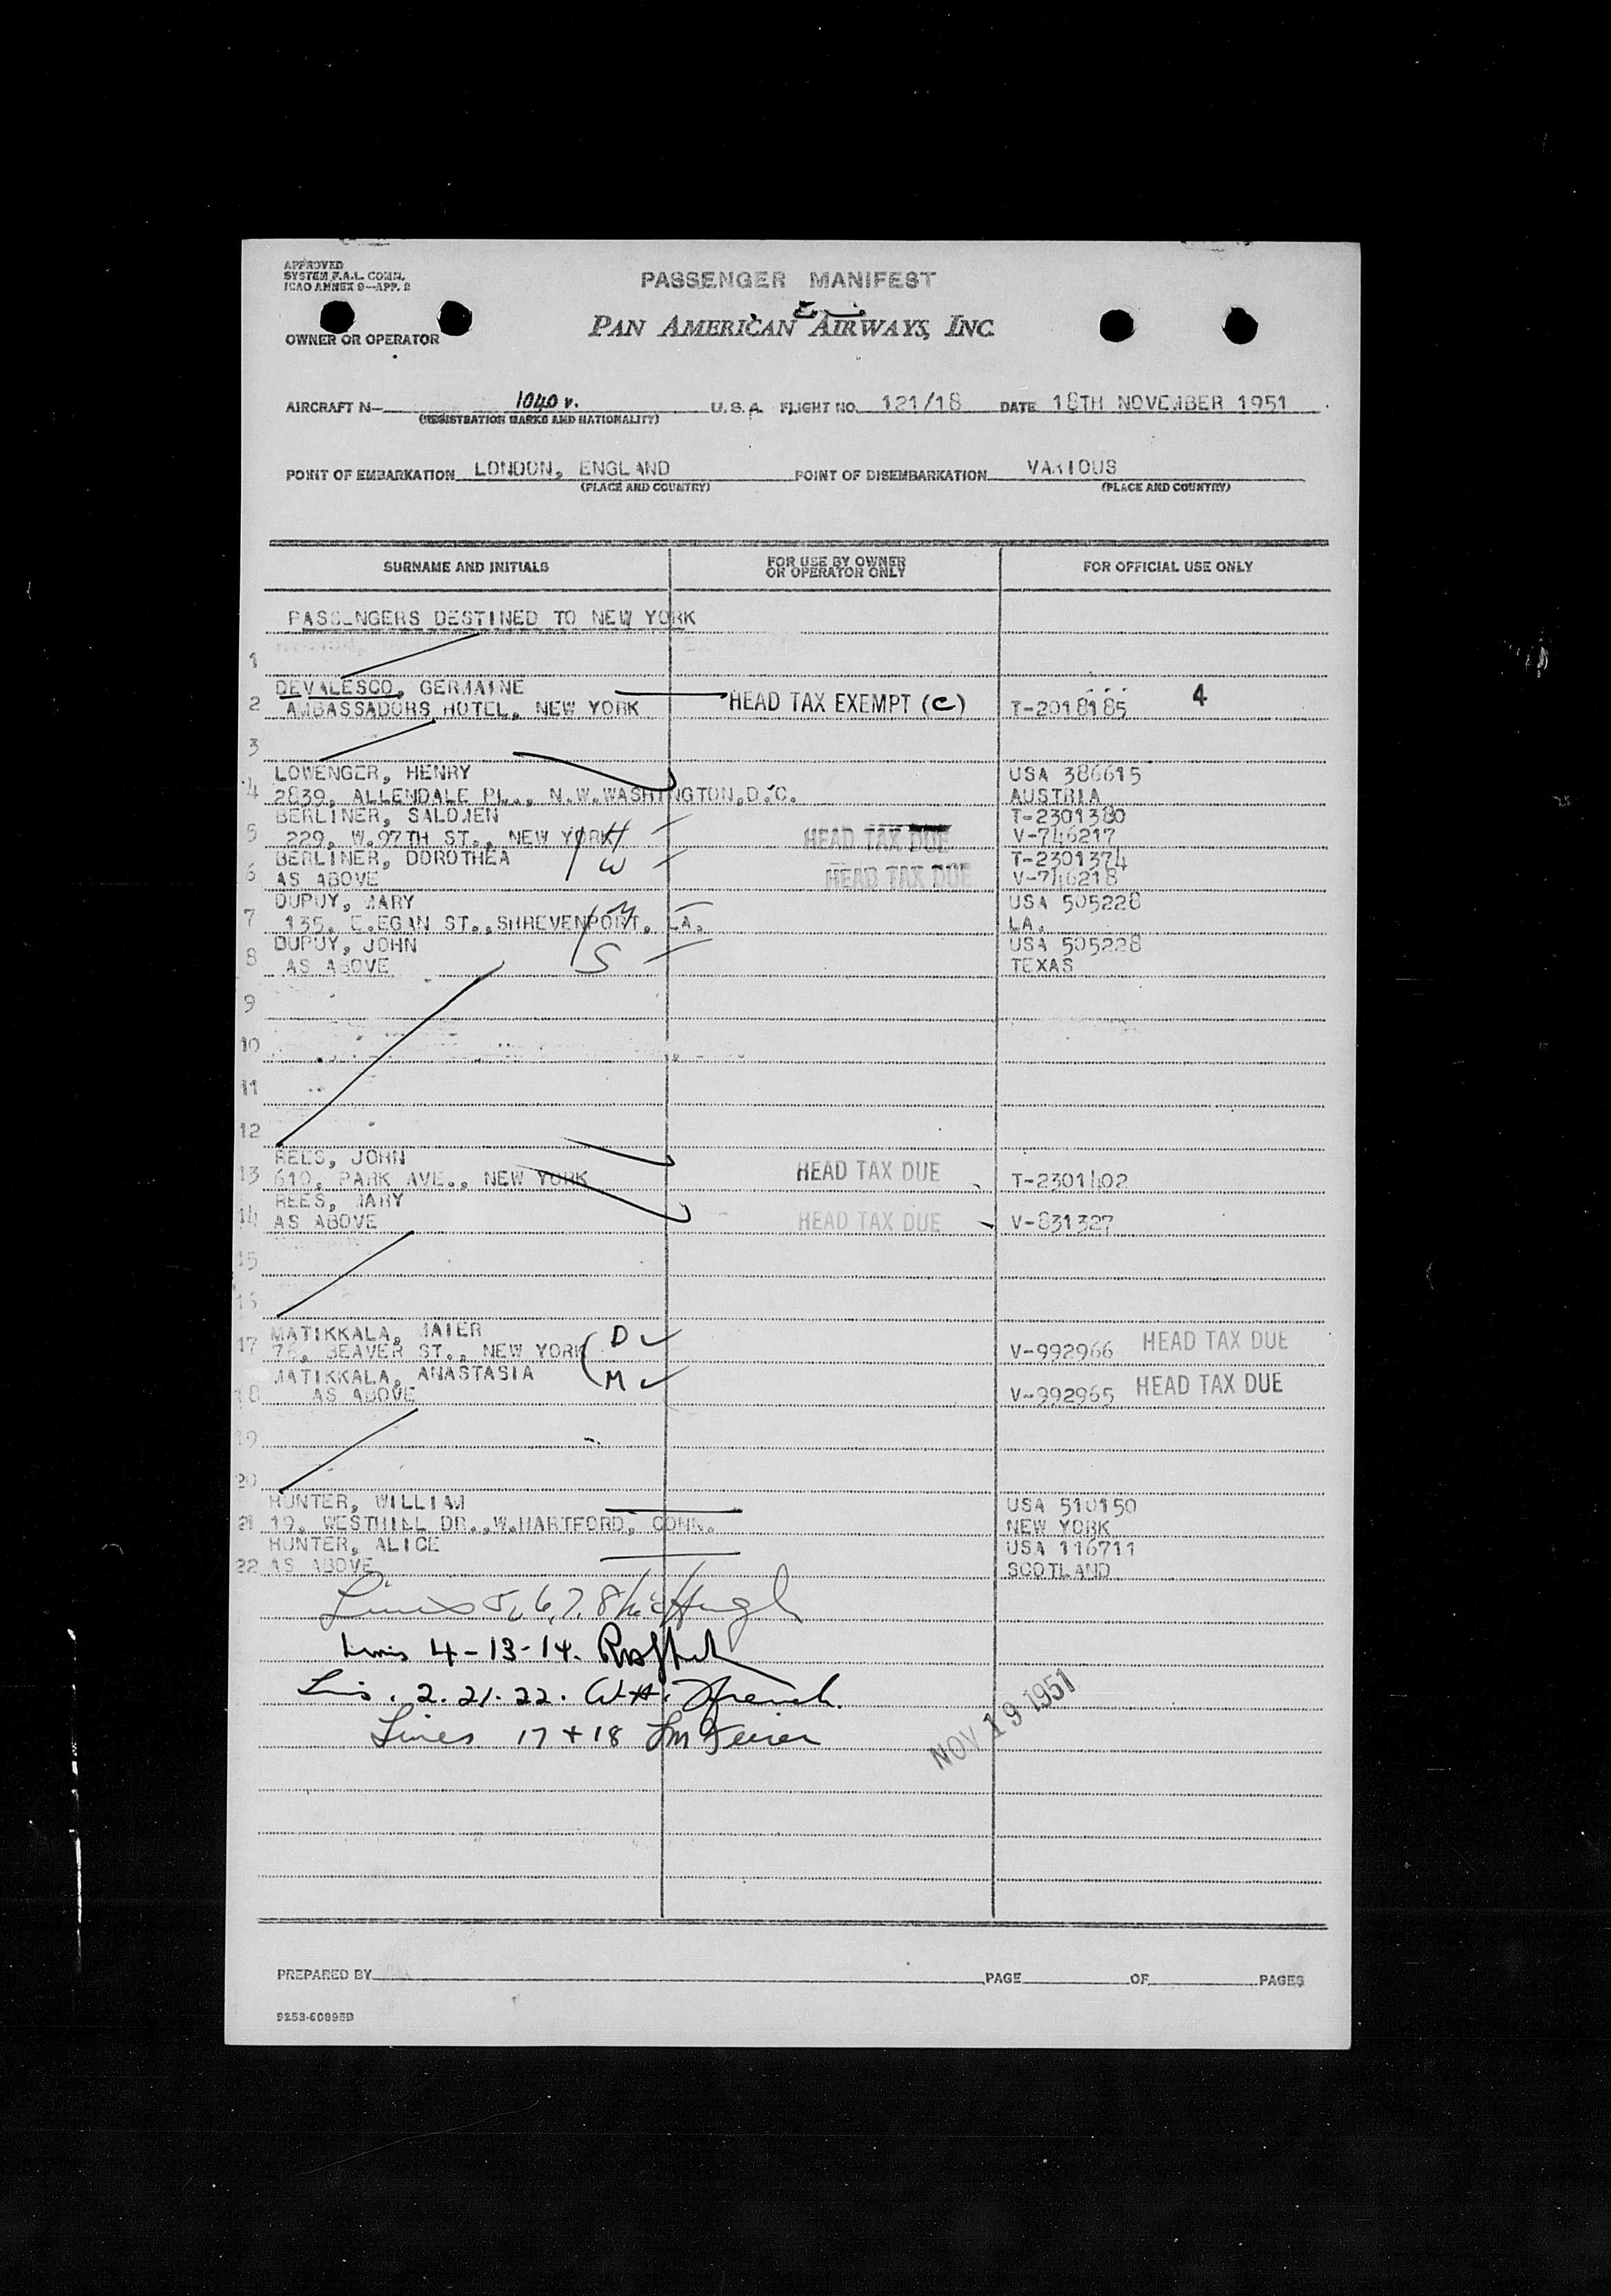 APPROVED
SYSTEM F.A.L. COMM.
ICAO ANNEX 9—APP. 2
PASSENGER MANIFEST
PAN AMERICAN AIRWAYS, INC.
OWNER OR OPERATOR
AIRCRAFT N- 1040 v. U.S.A. FLIGHT NO. 121/18 DATE 18TH NOVEMBER 1951
(REGISTRATION MARKS AND NATIONALITY)
POINT OF EMBARKATION LONDON, ENGLAND POINT OF DISEMBARKATION VARIOUS
(PLACE AND COUNTRY) (PLACE AND COUNTRY)
SURNAME AND INITIALS FOR USE BY OWNER OR OPERATOR ONLY FOR OFFICIAL USE ONLY
PASSENGERS DESTINED TO NEW YORK
1
DEVALESCO, GERMAINE
2 AMBASSADORS HOTEL, NEW YORK HEAD TAX EXEMPT (C) T-2018185 4
3
LOWENGER, HENRY USA 386615
4 2839, ALLENDALE PL., N.W.WASHINGTON,D.C. AUSTRIA
BERLINER, SALOMEN T-2301380
5 229, W.97TH ST., NEW YORK H HEAD TAX DUE V-746217
BERLINER, DOROTHEA T-2301374
6 AS ABOVE W HEAD TAX DUE V-746218
DUPUY, MARY USA 505228
7 135, E.EGAN ST.,SHREVENPORT, LA. M LA.
DUPUY, JOHN USA 505228
8 AS ABOVE S TEXAS
9
10
11
12
REES, JOHN
13 610, PARK AVE., NEW YORK HEAD TAX DUE T-2301402
REES, MARY
14 AS ABOVE HEAD TAX DUE V-831327
15
16
MATIKKALA, MAIER
17 76, BEAVER ST., NEW YORK D V-992966 HEAD TAX DUE
MATIKKALA, ANASTASIA
18 AS ABOVE M V-992965 HEAD TAX DUE
19
20
HUNTER, WILLIAM USA 510150
21 19, WESTHILL DR.,W.HARTFORD, CONN. NEW YORK
HUNTER, ALICE USA 116711
22 AS ABOVE SCOTLAND
Lines 5, 6, 7, 8
Lines 4-13-14.
Lis. 2. 21. 22. W.H. French.
Lines 17 + 18
NOV 19 1951
PREPARED BY PAGE OF PAGES